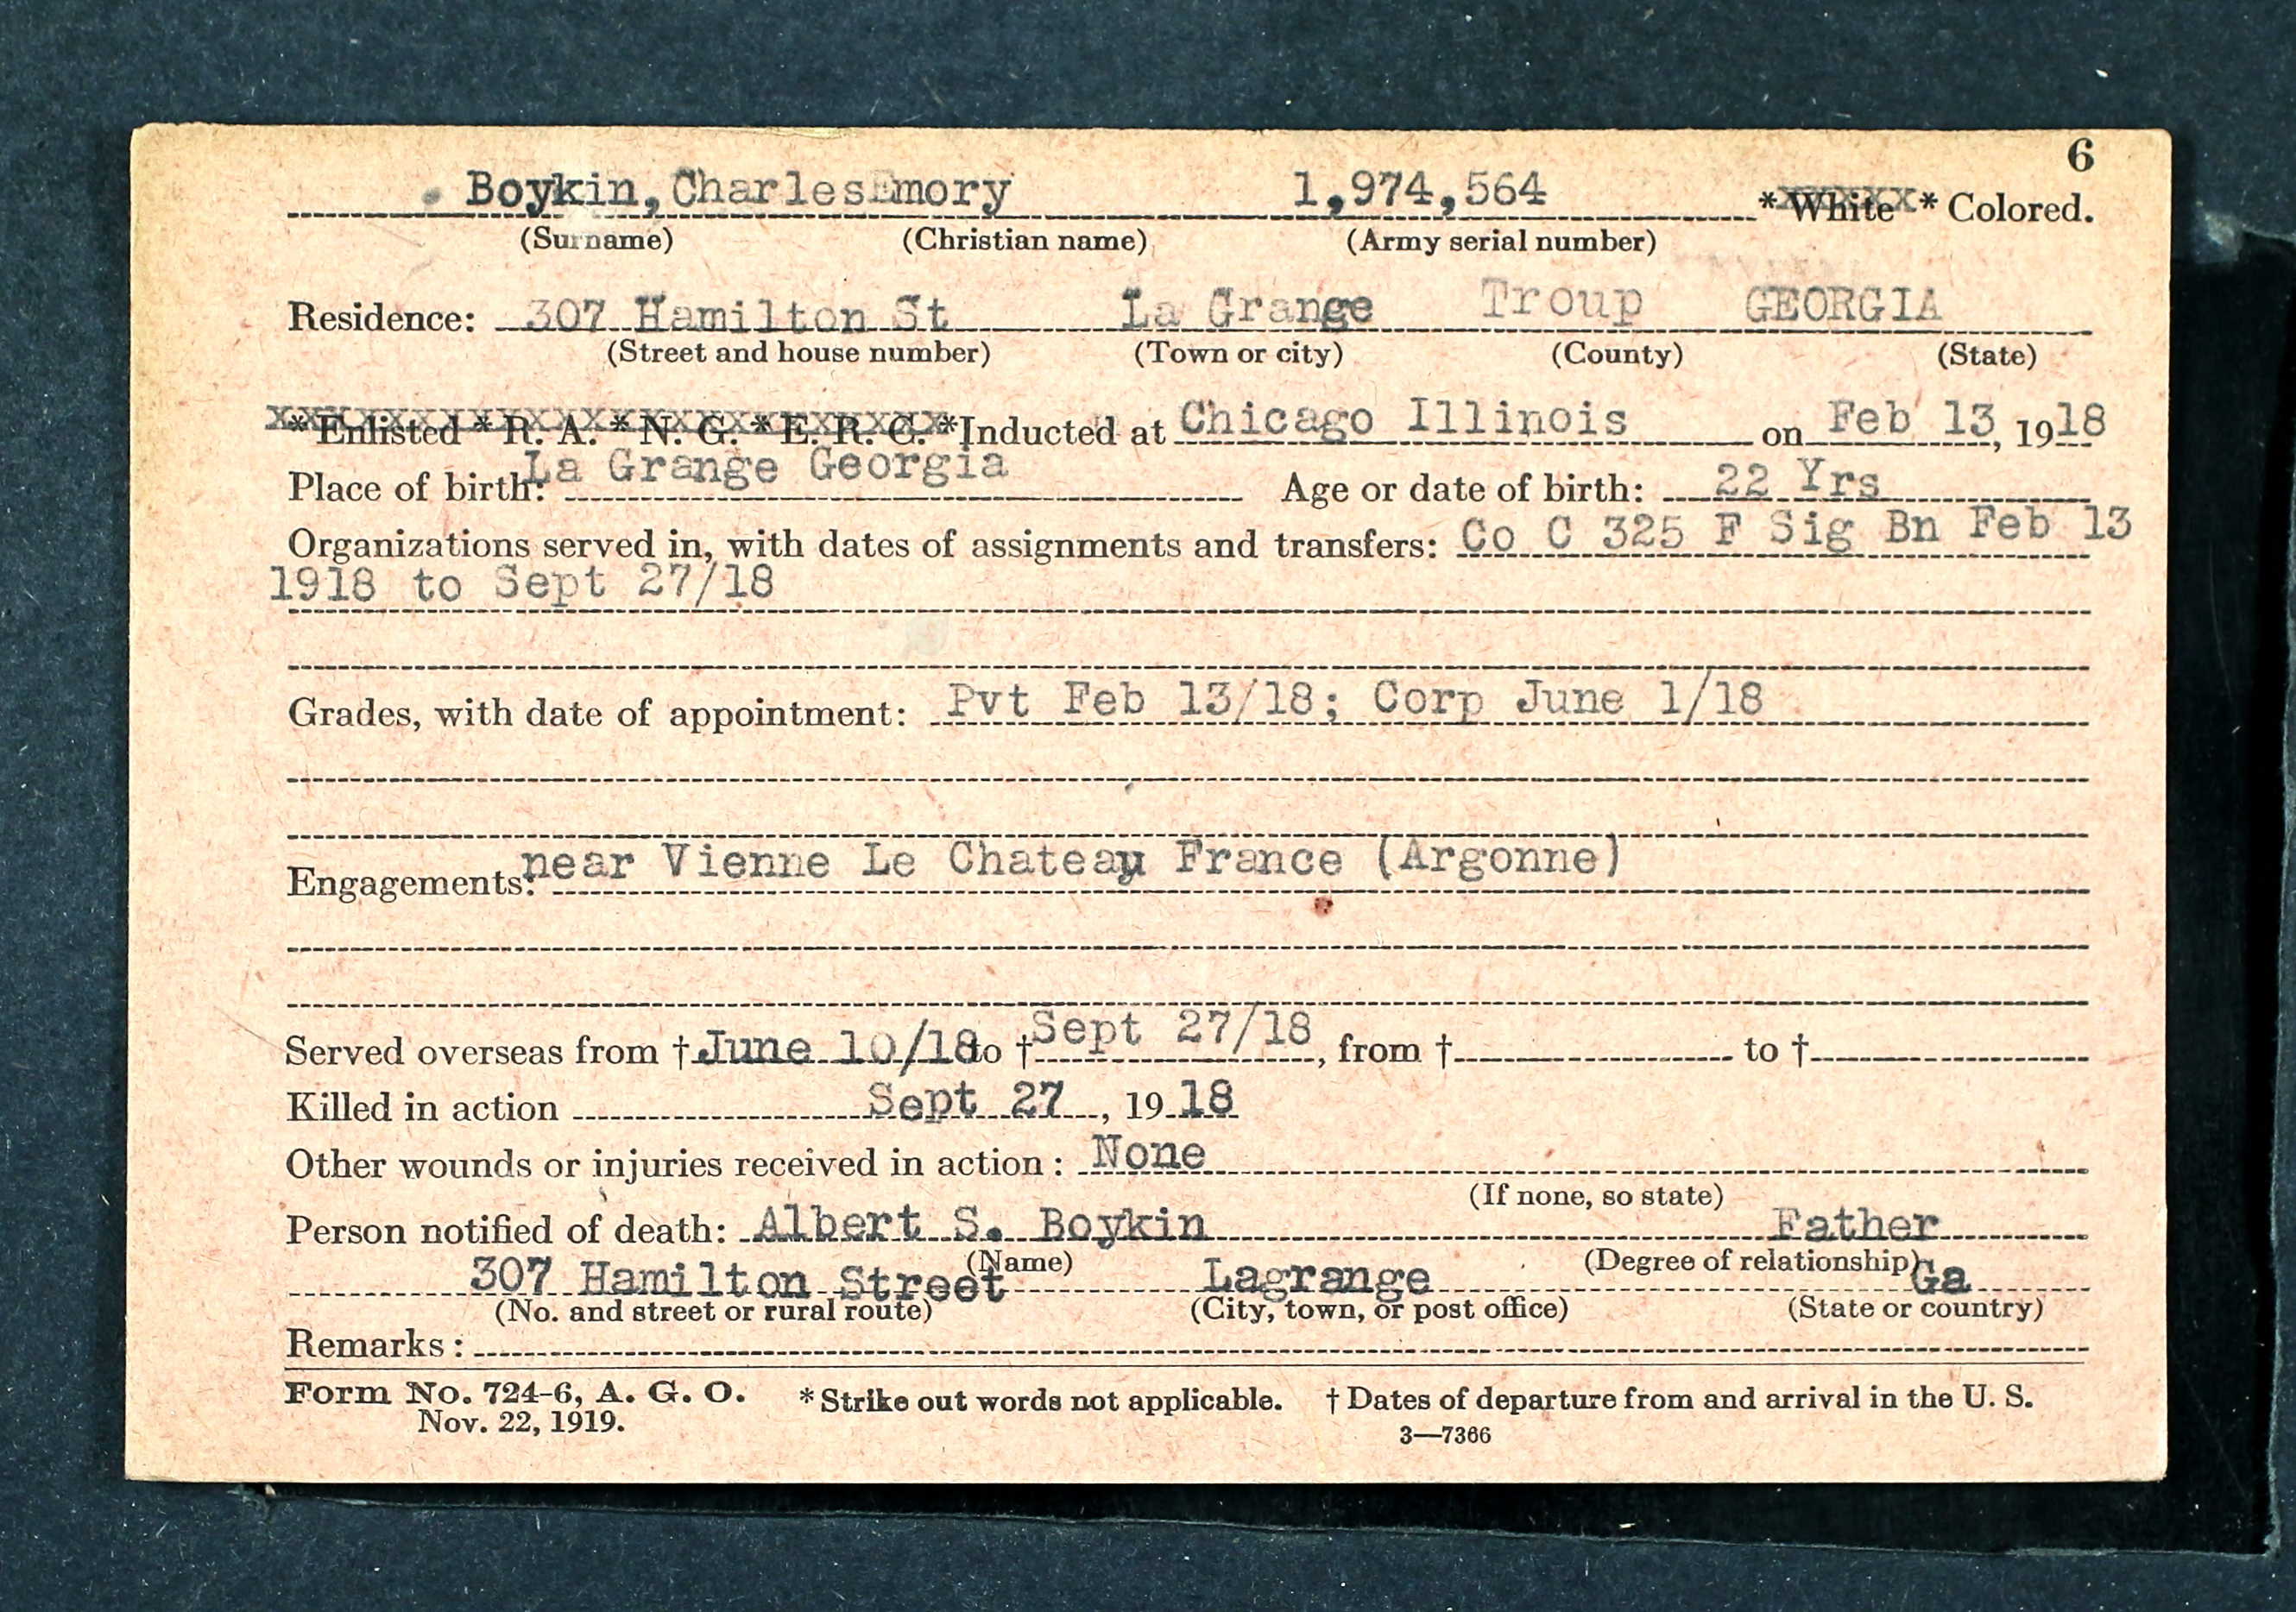 6
Boykin, Charles Emory 1,974,564 * White * Colored.
(Surname) (Christian name) (Army serial number)
Residence: 307 Hamilton St La Grange Troup GEORGIA
(Street and house number) (Town or city) (County) (State)
* Enlisted * R. A. * N. G. * E. R. C. * Inducted at Chicago Illinois on Feb 13, 1918
Place of birth: La Grange Georgia Age or date of birth: 22 Yrs
Organizations served in, with dates of assignments and transfers: Co C 325 F Sig Bn Feb 13
1918 to Sept 27/18
Grades, with date of appointment: Pvt Feb 13/18; Corp June 1/18
Engagements: near Vienne Le Chateau France (Argonne)
Served overseas from † June 10/18 to † Sept 27/18, from † to †
Killed in action Sept 27, 1918
Other wounds or injuries received in action: None
(If none, so state)
Person notified of death: Albert S. Boykin Father
(Name) (Degree of relationship)
307 Hamilton Street Lagrange Ga
(No. and street or rural route) (City, town, or post office) (State or country)
Remarks:
Form No. 724-6, A. G. O. * Strike out words not applicable. † Dates of departure from and arrival in the U. S.
Nov. 22, 1919. 3—7366